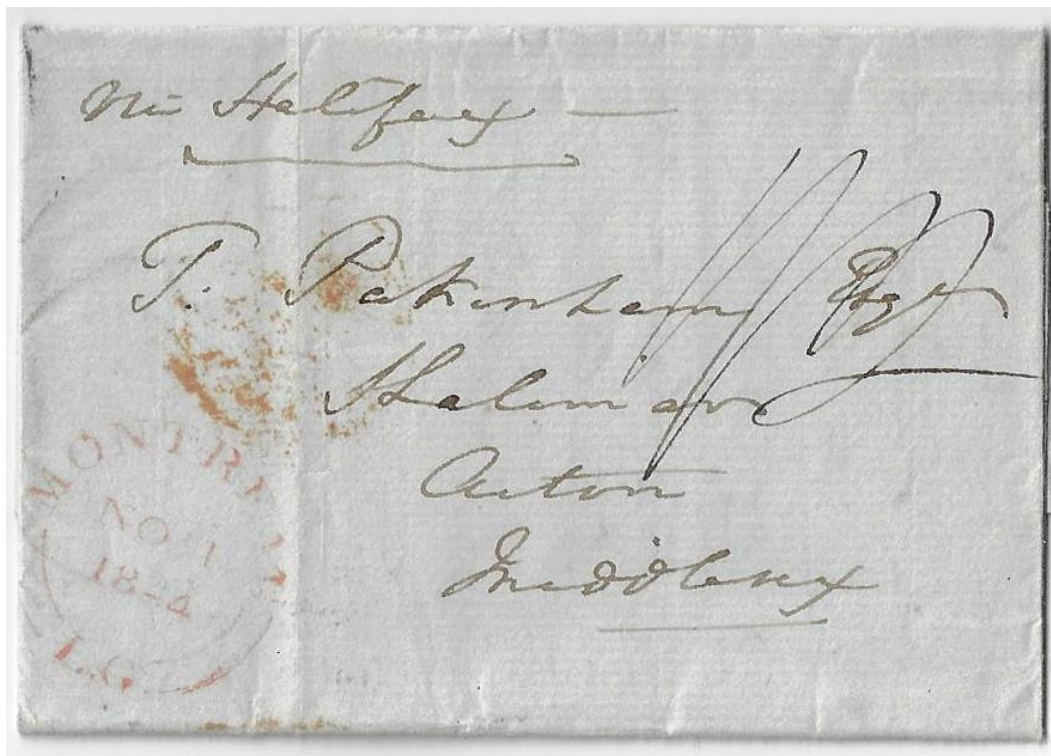 Via Halifax —
T. Pakenham Esqr
Shalimar
Acton
Middlesex
MONTRE
NO 1
18
L.C.